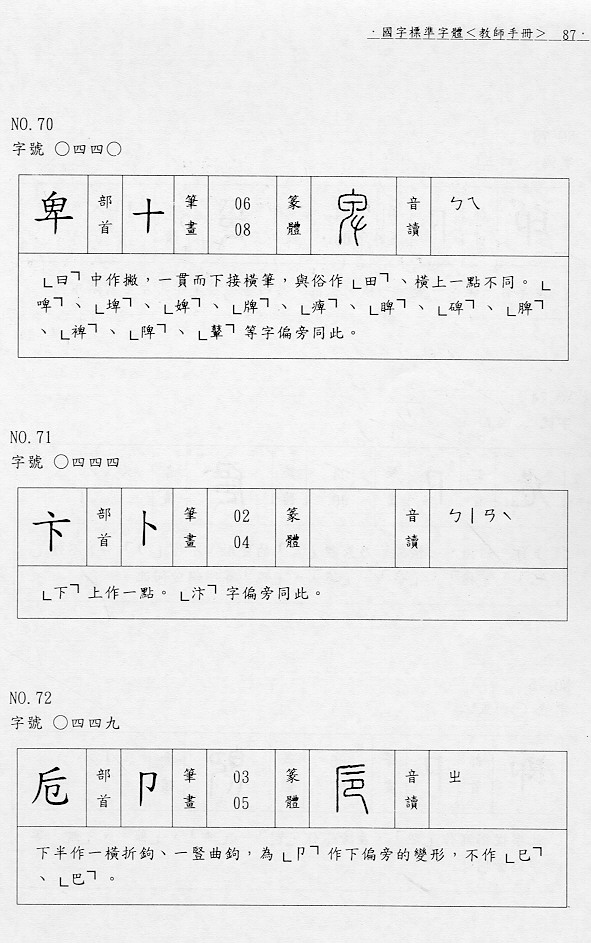 ·國字標準字體<教師手冊> 87·
NO.70
字號 〇四四〇
卑 部首 十 筆畫 06 08 篆體 音讀 ㄅㄟ
「曰」中作撇，一貫而下接橫筆，與俗作「田」、橫上一點不同。「
啤」、「埤」、「婢」、「牌」、「痺」、「睥」、「碑」、「脾」
、「裨」、「陴」、「鼙」等字偏旁同此。
NO.71
字號 〇四四四
卞 部首 卜 筆畫 02 04 篆體 音讀 ㄅㄧㄢˋ
「下」上作一點。「汴」字偏旁同此。
NO.72
字號 〇四四九
卮 部首 卩 筆畫 03 05 篆體 音讀 ㄓ
下半作一橫折鉤、一豎曲鉤，為「卩」作下偏旁的變形，不作「巳」
、「巴」。